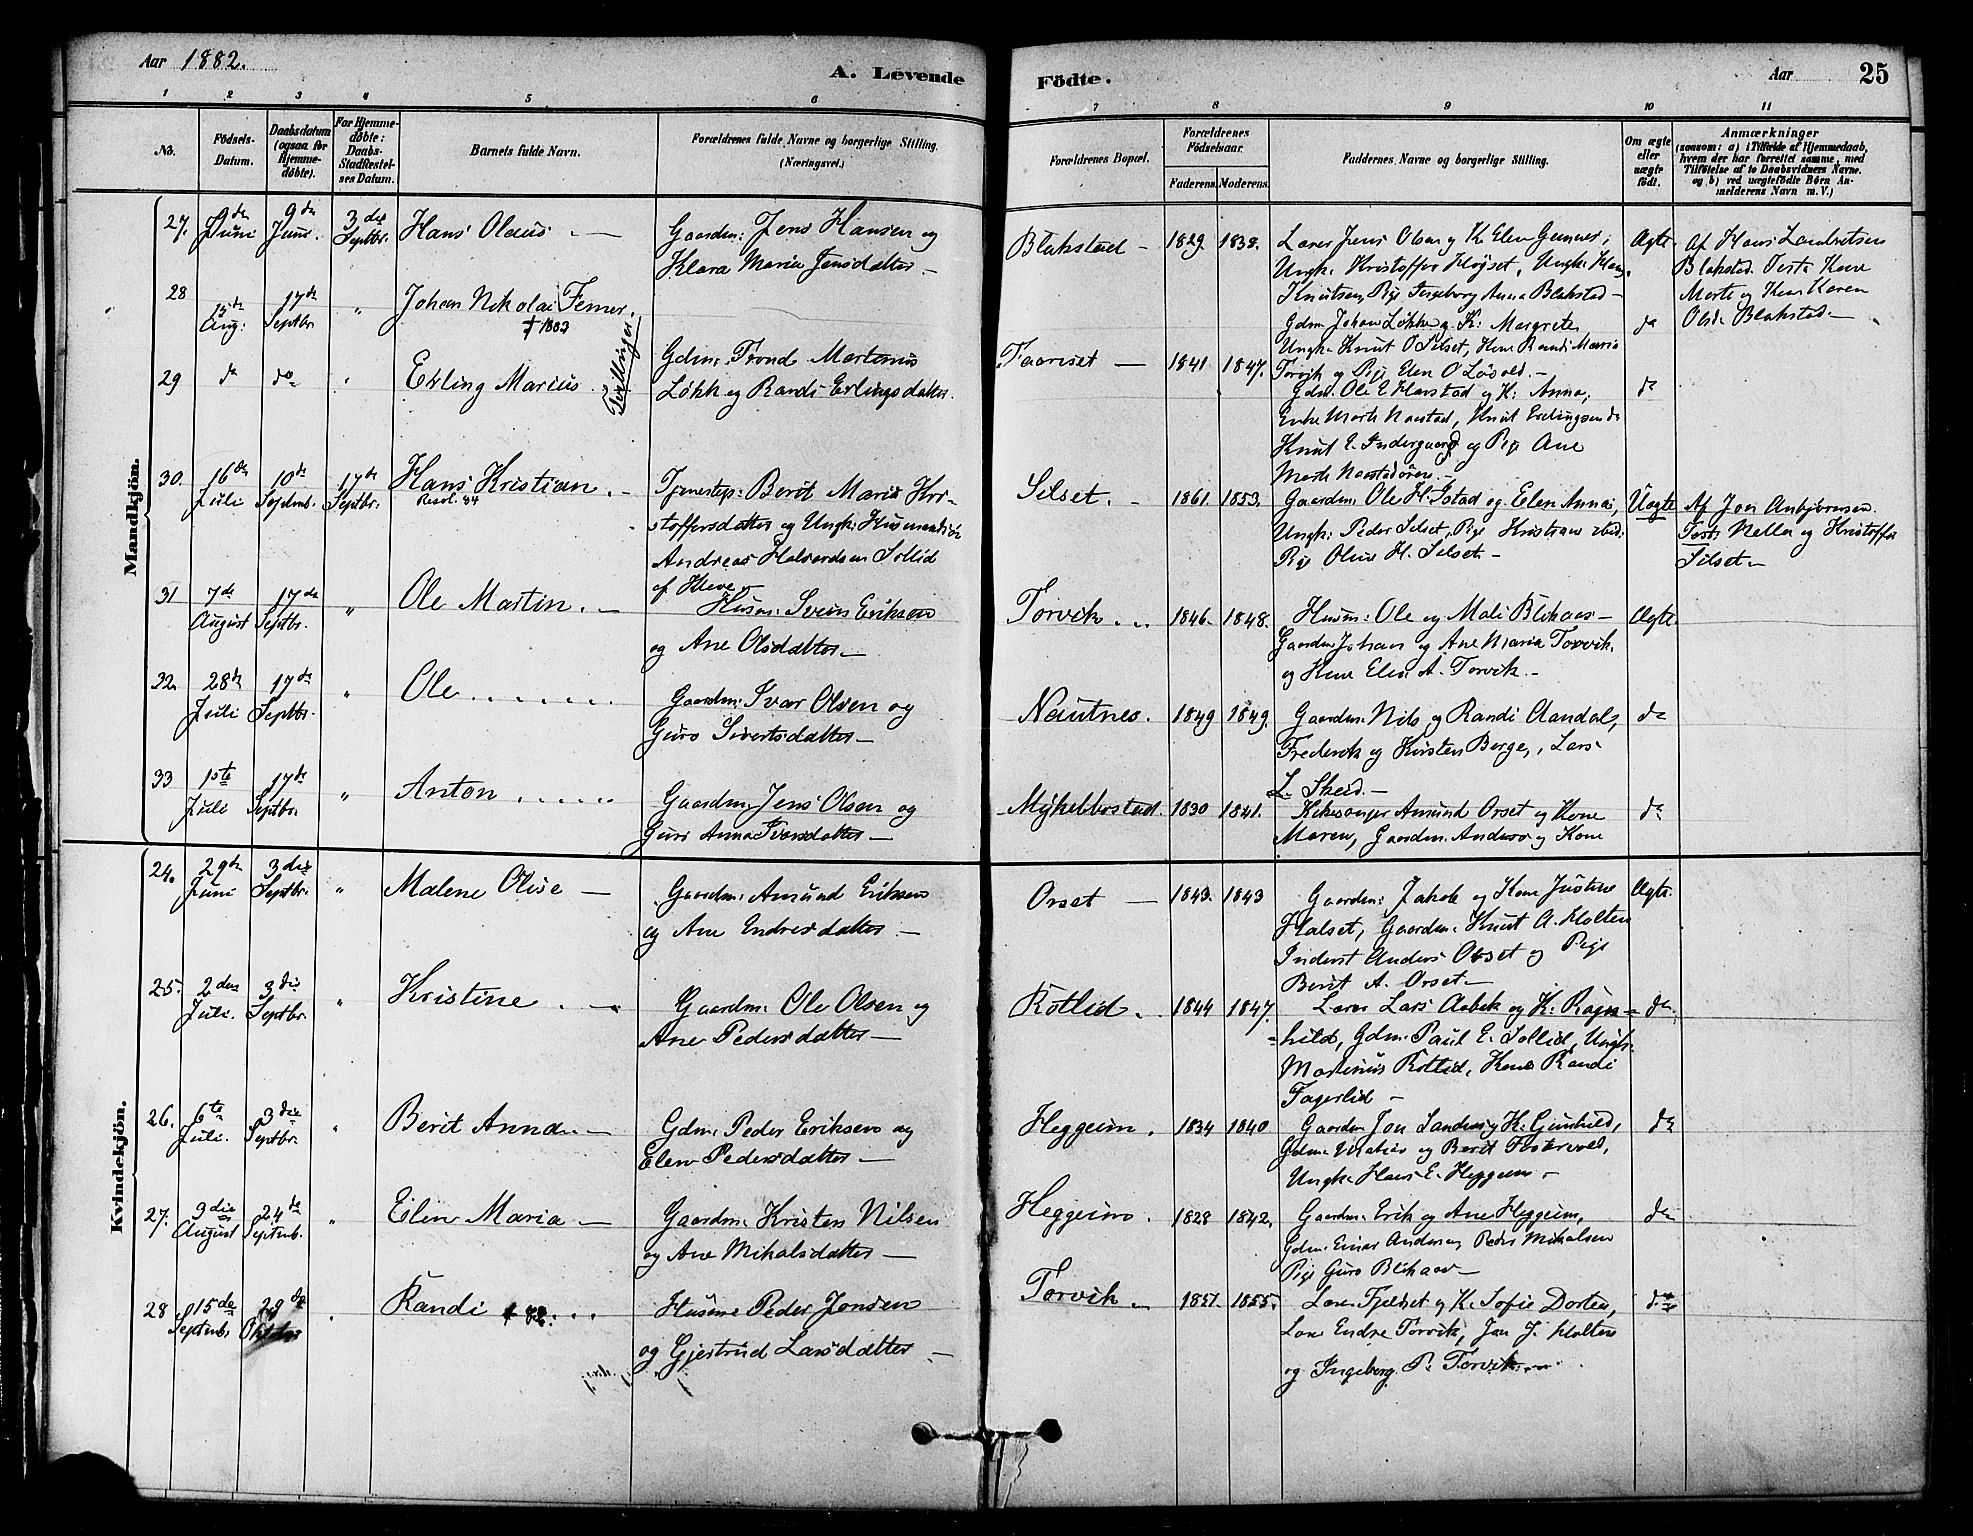 Aar 1882.
A. Levende
Födte.
Aar
25
1 2 3 4 5 6 7 8 9 10 11
No.
Födsels-Datum.
Daabsdatum (ogsaa for Hjemmedöbte).
For Hjemmedöbte: Daabs-Stadfæstelses Datum.
Barnets fulde Navn.
Forældrenes fulde Navne og borgerlige Stilling. (Næringsvei.)
Forældrenes Bopæl.
Forældrenes Födselsaar.
Faderens. Moderens.
Faddernes Navne og borgerlige Stilling.
Om ægte eller uægte födt.
Anmærkninger
(saasom: a) i Tilfælde af Hjemmedaab, hvem der har forrettet samme, med Tilföielse af to Daabsvidners Navne. og b) ved uægtefödte Börn Anmelderens Navn m. V.)
Mandkjön.
27. 9de Juni 9de Juni. 3die Septbr. Hans Olaus. — Gaardm: Jens Hansen og
Klara Maria Jensdatter —
Blakstad — 1829 1838. Lærer Jens Olsen og K. Elen
Ungk: Kristoffer Højset, Ungk: Hans
Knutsen, Pige Ingeborg Anna Blakstad —
Ægte. Af Hans Lambretsen
Blakstad. Testa Kone
Marte og Kone Karen
Olsd. Blakstad. —
28 15de Aug: 17de Septbr. " Johan Nikolai Ferner.
† 1883
Tvillinger
Gdm: Johan Løkke og K: Margrete,
Ungk: Knut O Silset, Kone Randi Maria
Torvik og Pige Elen O Løsvold. —
da
29 da do " Erling Marius Gdm: Trond Martinus
Løkk og Randi Erlingsdatter.
Taarset — 1841. 1847.
Gdm: Ole E Harstad og K: Anna,
Enke Marte Naastad, Knut Erlingsen da
Knut E. Indergaard og Pige Ane
Marte Naastadøren. —
da
30. 16de Juli 10de Septemb. 17de Septbr. Hans Kristian. —
Tjenestep: Berit Maria Kri-
stoffersdatter og Ungk: Husmandssøn
Andreas Halvordsen Sollid
af Kleve —
Silset. — 1861. 1853. Gaardm: Ole H. Istad og Elen Anna,
Ungk: Peder Silset, Pige Kristiane ibid.
Pige Oline H. Silset —
Uægte Af Jon Anbjørnsen.
Test: Nella og Kristoffer
Silset —
31 7de August 17de Septbr. " Ole Martin. — Husm: Svein Eriksen
og Ane Olsdatter —
Torvik. .. 1846. 1848. Husm: Ole og Mali Blikaas —
Gaardm Johan og Ane Maria Torvik.
og Kone Elen A. Torvik. —
Ægte.
32. 28de Juli 17de Septbr. " Ole Gaardm: Ivar Olsen og
Guro Sivertsdatter —
Nautnes. 1849 1849. Gaardm: Nils og Randi Aandal,
Frederik og Kirsten Berge, Lars
L. Skeid. —
da
33 1ste Juli 17de Septbr. " Anton Gaardm. Jens Olsen og
Guri Anna Ivarsdatter —
Myhelbostad. 1830 1841. Kirkesanger Amund Orset og Kone
Maren, Gaardm. Anders og Kone
da
Kvindekjön.
24. 29de Juni 3die Septbr. " Malene Olise — Gaardm: Amund Eriksen
og Ane Endresdatter —
Orset — 1843. 1843 Gaardm: Jakob og Kone Justine
Halset, Gaardm. Knut A. Holten
Inderst Anders Orset og Pige
Berit A. Orset —
Ægte.
25. 2den Juli. 3die Septbr. " Kristine. — Gaardm: Ole Olsen og
Ane Pedersdatter —
Rotlid. 1844 1847. Lærer Lars Aabek og K: Ragn-
hild, Gdm: Paul E. Sollid, Ungk.
Martinus Rotlid, Kone Randi
Fagerlid —
da
26. 6te Juli. 3die Septbr. " Berit Anna — Gdm. Peder Eriksen og
Elen Pedersdatter —
Heggeim. 1834 1840 Gaardm Jon Sandnes og K. Gunhild,
Gdm. Mathias og Berit
Ungk. Hans E. Heggeim —
da
27. 3die August 24de Septemb. " Elen Maria — Gaardm. Kristen Nilsen
og Ane Mikalsdatter —
Heggeim. 1828 1842. Gaardm. Erik og Ane Heggeim,
Gdm. Einar Andersen, Peder Mikalsen
Pige Guro Blikaas —
da
28 15de Septemb. 29de Randi † 82. Husm Peder Jonsen
og Gjertrud Larsdatter —
Torvik — 1857. 1855. Lærer Fjeldset og K. Sofie Dorten,
Lars Endre Torvik, Jon J. Holten
og Ingeborg P. Torvik
do